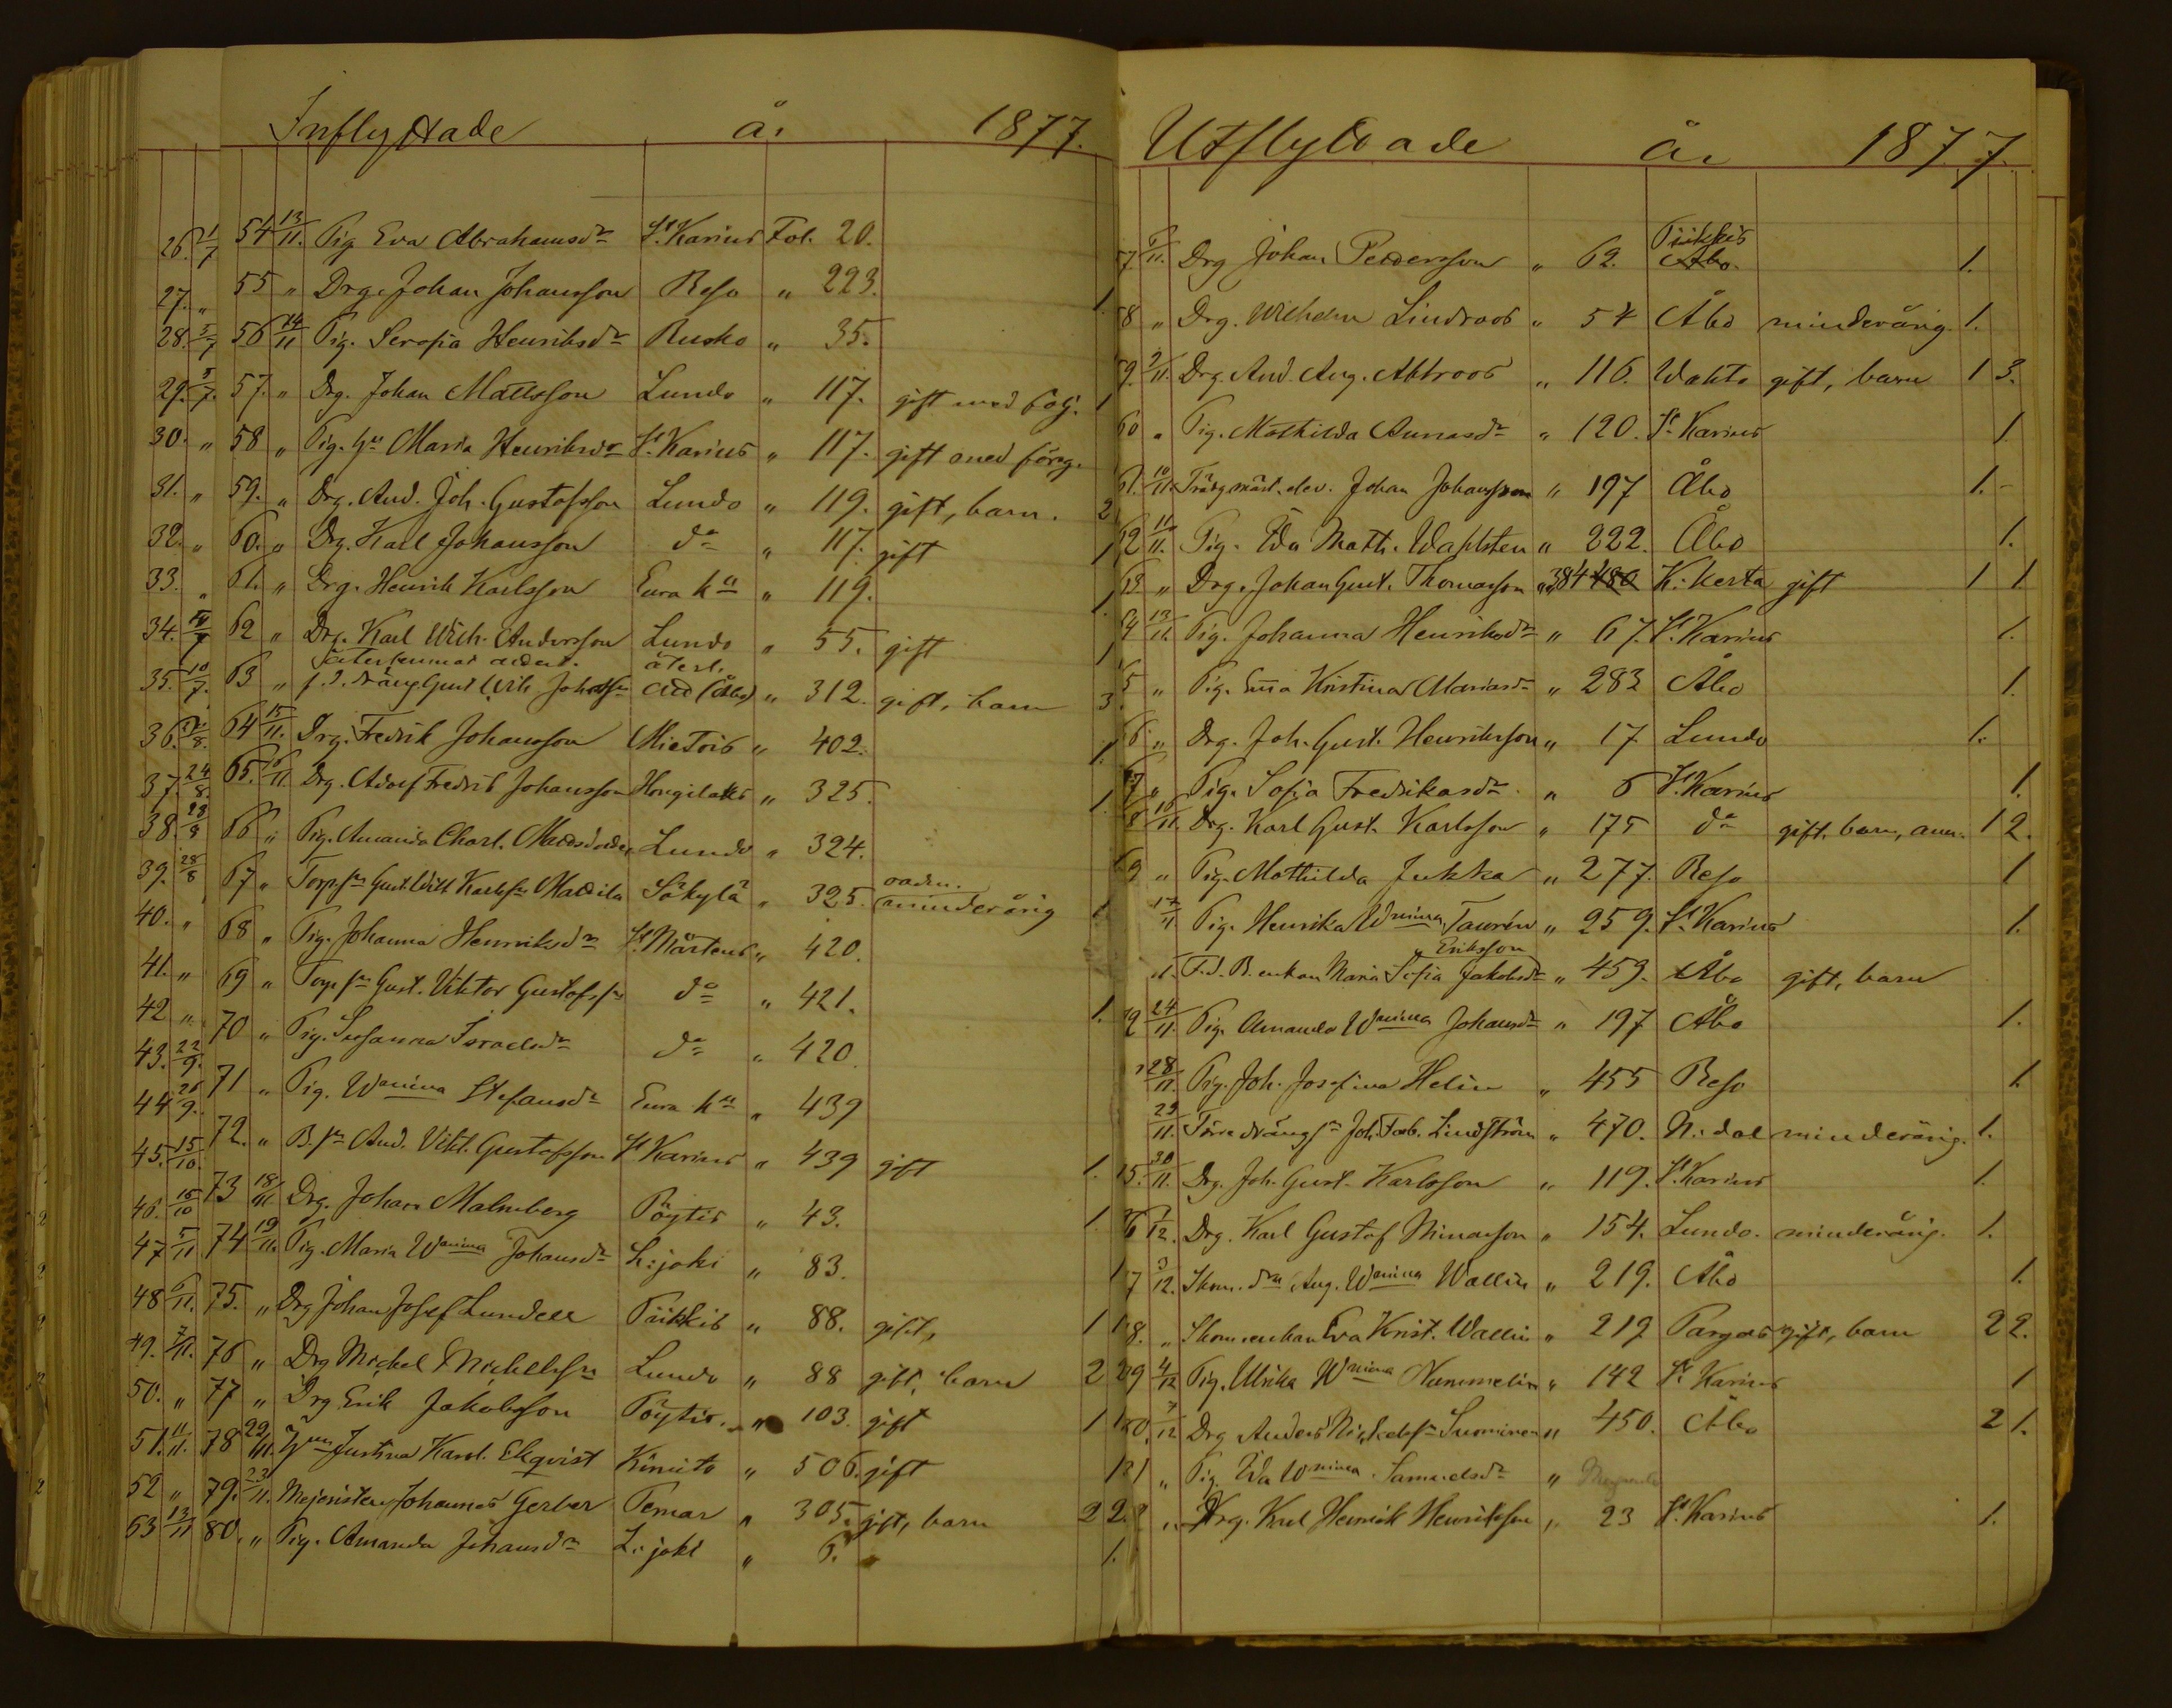 Inflyttade år 1877.
26. 1/7 54 13/11. Pig Eva Abrahamsdr St. Karins Fol. 20.
27. " 55 " Drg. Johan Johansson Reso " 223. 1.
28. 5/7 56 14/11 Pig. Serafia Henriksdr Rusko " 35.
29. 5/7. 57. " Drg. Johan Mattsson Lundo " 117. gift med följ. 1
30. " 58 " Pig. Maria Henriksdr St. Karins " 117. gift med föreg.
31. " 59. " Drg. And. Joh. Gustafsson Lundo " 119. gift, barn. 2
32. " 60. " Drg. Karl Johansson do " 117. gift 1
33. " 61. " Drg. Henrik Karlsson Eura kll " 119. 1
34. 62 " Drg. Karl Wilh. Andersson Lundo " 55. gift 1
35. 10/7. 63 " f.d. dräng Gust Wilh Johansson återk. (Åbo) " 312. gift, barn 3.
36. 64 15/11. Drg. Fredrik Johansson Mietois " 402. 1.
37. 24/8. 65. 16/11 Drg. Adolf Fredrik Johansson Hongilaks " 325. 1.
38. 28/8 66 " Pig. Amanda Charl. Lundo " 324.
39. 28/8 67 " Torpsn Gust. Wilh Karlssn Mattila Säkylä " 325. minderårig 1
40. " 68 " Pig. Johanna Henriksdr St. Mårtens " 420.
41. " 69 " Torpsn Gust. Viktor Gustafssn do " 421. 1.
42 " 70 " Pig. Susanna Israelsdr do " 420.
43. 22/9. 71 " Pig. Wamina Stefansdr Eura kll " 439
44 26/9. 72. " B. sn And. Vikt. Gustafsson St Karins " 439 gift 1.
45. 15/10. 73 18/11 Drg. Johan Malmberg Pöytis " 43. 1.
46. 15/10 74 19/11. Pig. Maria Wamina Johansdr L:joki " 83.
47 5/11 75. " Drg Johan Josef Lundell Piikkis " 88. gift, 1
48 6/11. 76 " Drg Mickel Mickelssn Lundo " 88 gift, barn 2
49. 7/11. 77 " Drg Erik Jakobsson Pöytis. " 103. gift 1
50. " 78 22/11. Justina Karol. Ekqvist Kimito " 506. gift
51. 11/11. 79. 23/11. Mejeristen Johannes Gerber Pemar " 305. gift, barn 2
52 " 80. " Pig. Amanda Johansdr L:joki " 6. 1.
53 13/11
Utflyttade år 1877.
57. 11. Drg Johan Pettersson " 62. Piikkis Åbo. 1.
58 " Drg. Wilhelm Lindroos " 54 Åbo minderårig. 1.
59. 9/11. Drg. And. Aug. Ahlroos " 116. Wahto gift, barn 1 3.
60 " Pig. Mathilda Annasdr " 120. St. Karins 1
61. 10/11. Trädgmäst. elev. Johan Johansson " 197 Åbo 1.
62 11/11. Pig. Ida Math. Wahlsten " 222. Åbo 1.
63 " Drg. Johan Gust. Thomasson " 384 480 K:kerta gift 1 1.
64 13/11. Pig. Johanna Henriksdr " 67. St. Karins 1.
65 " Pig. Kristina Mariasdr " 283 Åbo 1.
66. " Drg. Joh. Gust. Henriksson " 17 Lundo 1.
67 " Pig. Sofia Fredrikasdr " 6 St. Karins 1.
68 16/11. Drg. Karl Gust. Karlsson " 175 do gift, barn, ann. 1 2.
69 " Pig. Mathilda Jukka " 277. Reso 1
17/11 Pig. Henrika Wmina Taurén " 259. St. Karins 1.
Eriksson
F.d. B. enkan Maria Sofia Jakobsdr " 459. Åbo gift, barn
72 24/11. Pig. Amanda Wmina Johansdr " 197 Åbo 1.
28/11. Pig. Joh. Josefina Helin " 455 Reso 1
29/11. Joh. Fab. Lindström " 470. N:dal minderårig. 1.
75. 30/11. Drg. Joh. Gust. Karlsson " 119. St. Karins 1.
76 1/12. Drg. Karl Gustaf Ninasson " 154. Lundo. minderårig. 1.
77 3/12. Skom. dr Aug. Wmina Wallin " 219. Åbo 1.
78. " Skom. enkan Eva Krist. Wallin " 219 Pargas gift, barn 2 2.
79 4/12 Pig. Ulrika Wmina Nummelin " 142 St Karins 1
80. 7/12 Drg Anders Mickelssn Suominen " 450. Åbo 2 1.
81 " Pig. Ida Wmina Samuelsdr "
82 " Drg. Karl Henrik Henriksson " 23 St. Karins 1.